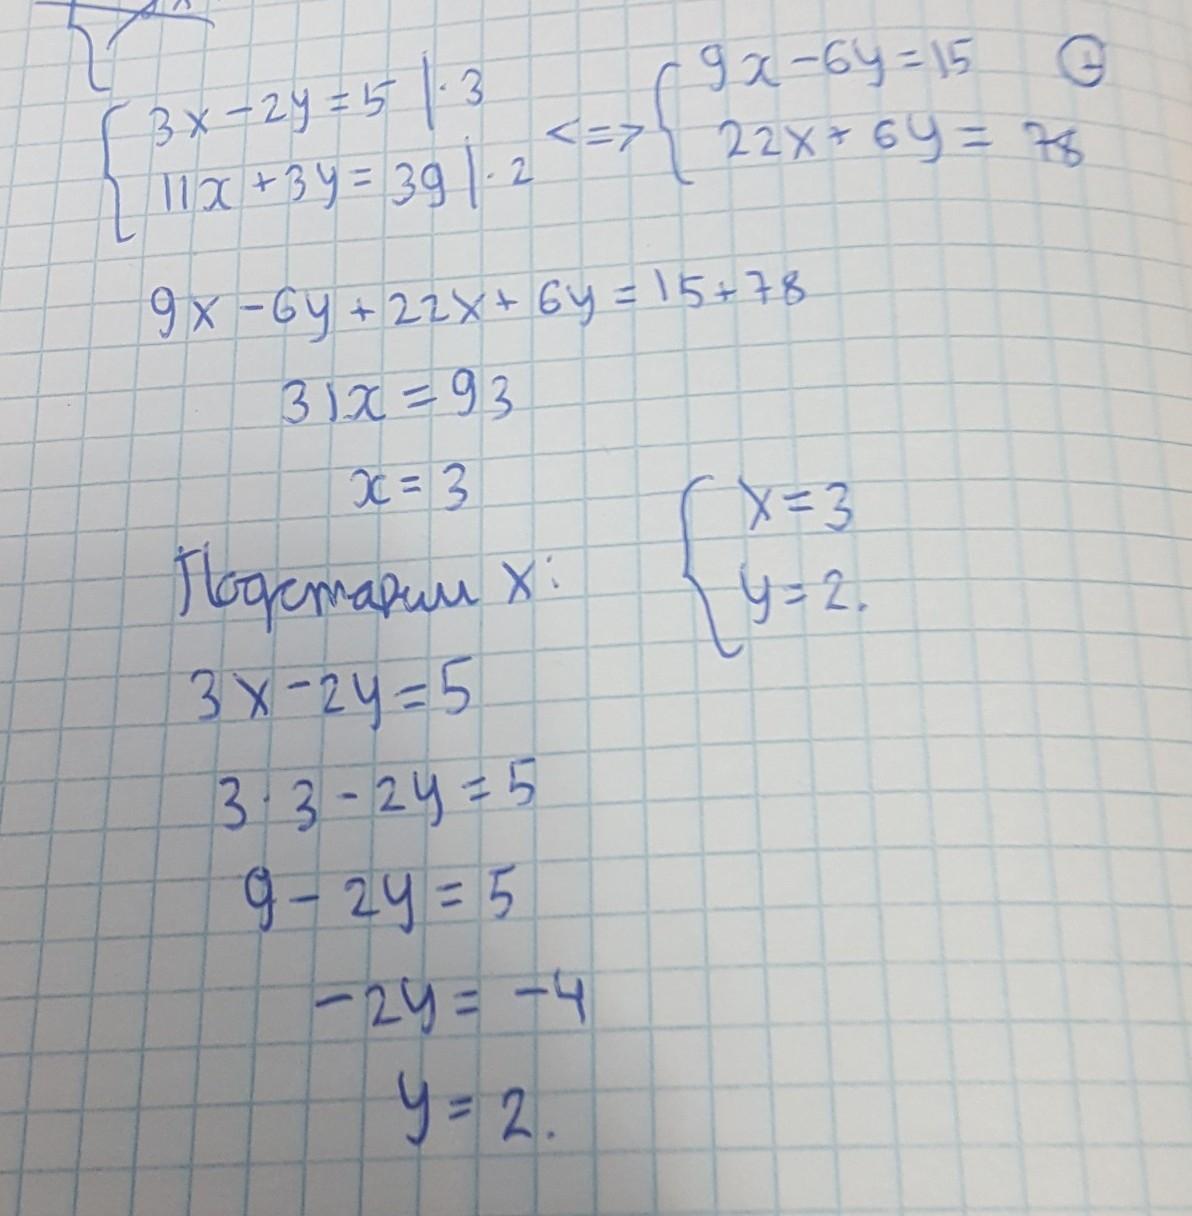 3x-2y=5 |·3
11x+3y=39 |·2
<=>
9x-6y=15 ⊕
22x+6y=78
9x-6y+22x+6y=15+78
31x=93
x=3
Подставим x:
3x-2y=5
3·3-2y=5
9-2y=5
-2y=-4
y=2.
x=3
y=2.